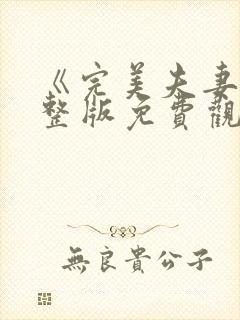 《完美夫妻
整版免費觀
無良貴公子